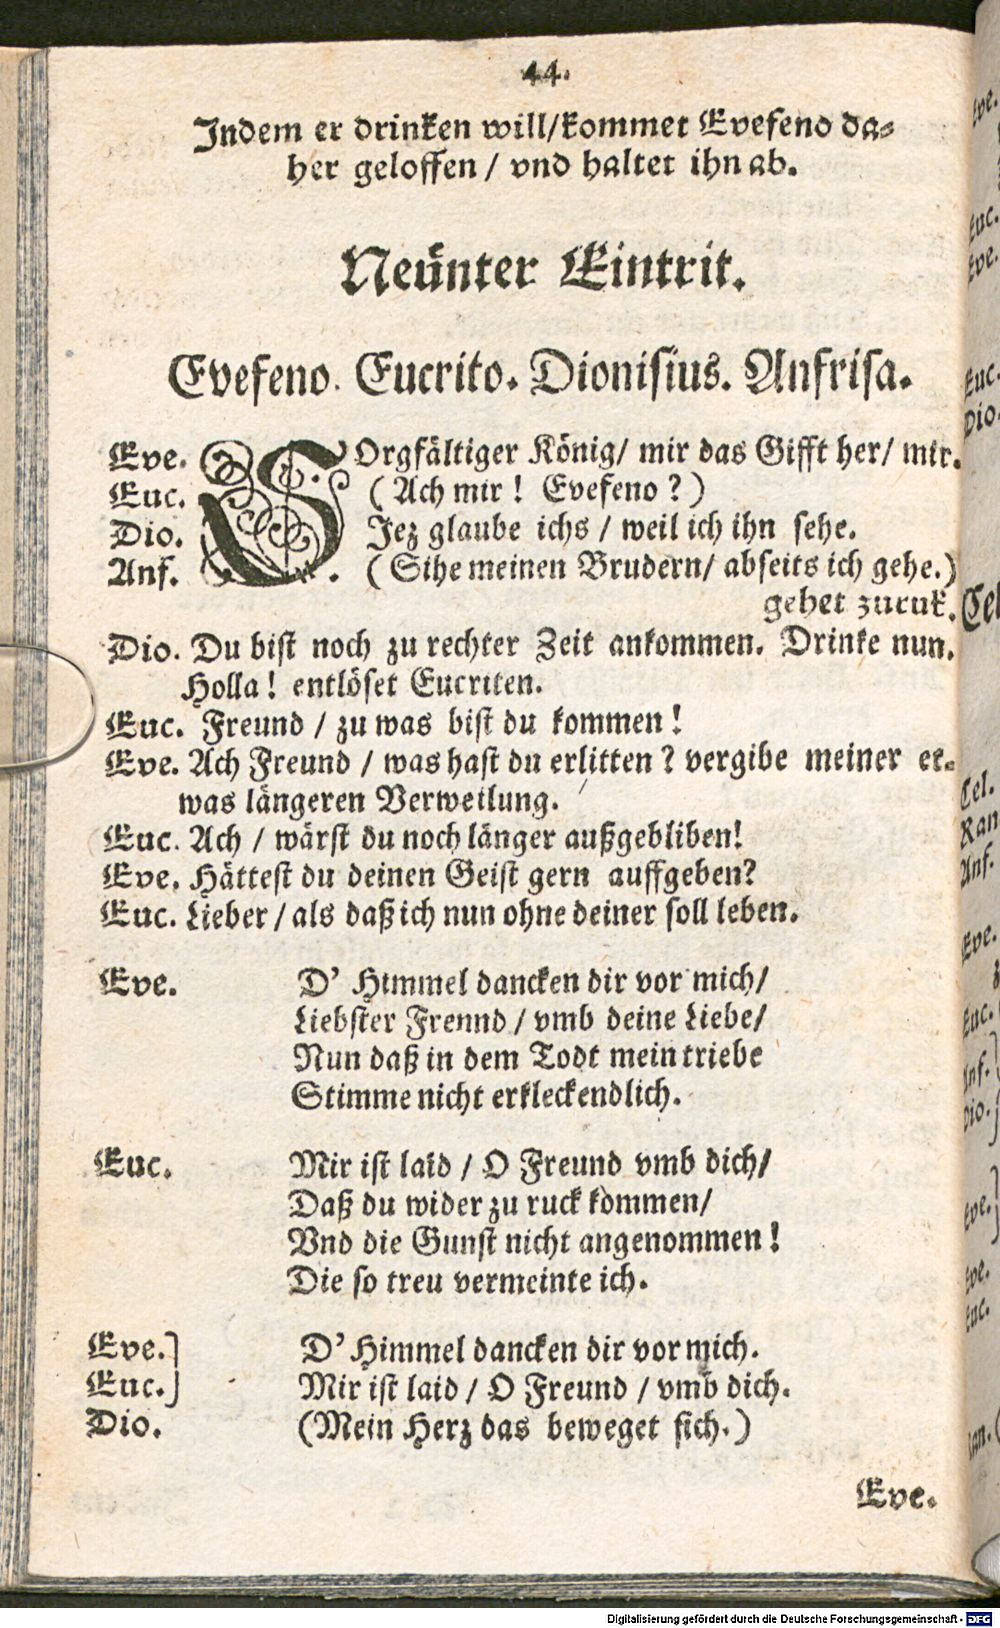 44.
Indem er drinken will/kommet Evefeno da=
her geloffen / vnd haltet ihn ab.
Neünter Eintrit.
Evefeno. Eucrito. Dionisius. Anfrisa.
Eve. SOrgfältiger König/ mir das Gifft her/ mir.
Euc. ( Ach mir ! Evefeno ? )
Dio. Jez glaube ichs / weil ich ihn sehe.
Anf. ( Sihe meinen Brudern/ abseits ich gehe.)
gehet zuruk.
Dio. Du bist noch zu rechter Zeit ankommen. Drinke nun.
Holla ! entlöset Eucriten.
Euc. Freund / zu was bist du kommen !
Eve. Ach Freund / was hast du erlitten ? vergibe meiner et=
was längeren Verweilung.
Euc. Ach / wärst du noch länger außgebliben!
Eve. Hättest du deinen Geist gern auffgeben?
Euc. Lieber / als daß ich nun ohne deiner soll leben.
Eve. D' Himmel dancken dir vor mich/
Liebster Frennd / vmb deine Liebe/
Nun daß in dem Todt mein triebe
Stimme nicht erkleckendlich.
Euc. Mir ist laid / O Freund vmb dich/
Daß du wider zu ruck kommen/
Vnd die Gunst nicht angenommen !
Die so treu vermeinte ich.
Eve.] D' Himmel dancken dir vor mich.
Euc.] Mir ist laid / O Freund / vmb dich.
Dio. (Mein Herz das beweget sich.)
Eve.
Eve.
Euc.
Eve.
Euc.
Dio.
Cel.
Ran.
Anf.
Eve.
Euc.
Anf.
Dio.
Eve.
Eve.
Euc.
Ran.
Digitalisierung gefördert durch die Deutsche Forschungsgemeinschaft - DFG